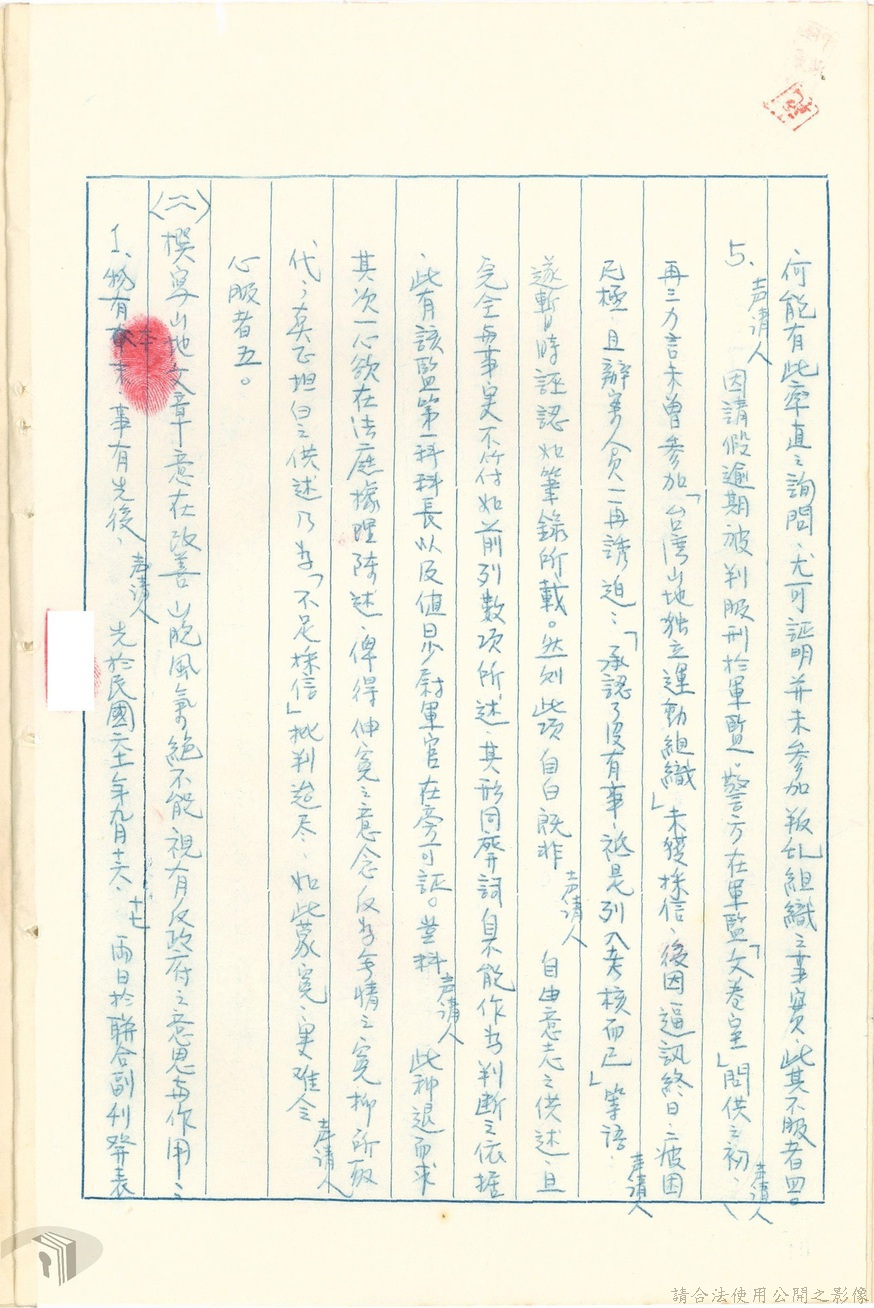 何能有此牽直之詢問、尤可証明并未参加叛乱組織之事實、此其不服者四。
5、声请人因請假逾期被判服刑於軍監。警方在軍監「文卷室」問供之初、声请人
再三力言未曽参加「台湾山地独立運動組織」未獲採信、後因逼訊終日、疲困
已極、且辦案人員一再誘迫：「承認了没有事、祗是列入考核而已」等語、声请人
遂暫時誣認如筆錄所載。然则此项自白既非声请人自由意志之供述、且
完全与事実不符如前列数项所述、其形同廢詞自不能作为判断之依据
、此有該監第一科科長以及值日少尉軍官在旁可証。豈料声请人此种退而求
其次一心欲在法庭據理陈述、俾得伸冤之意念反为無情之冤抑所取
代、真正坦白之供述乃为「不足採信」批判迨尽、如此蒙冤、実难令声请人
心服者五。
(二)撰寫山地文章意在改善山胞風氣絶不能視有反政府之意思与作用、
1、物有本末、事有先後、声请人先於民國六十一年九月十六、十七兩日於聯合副刊發表
請合法使用公開之影像